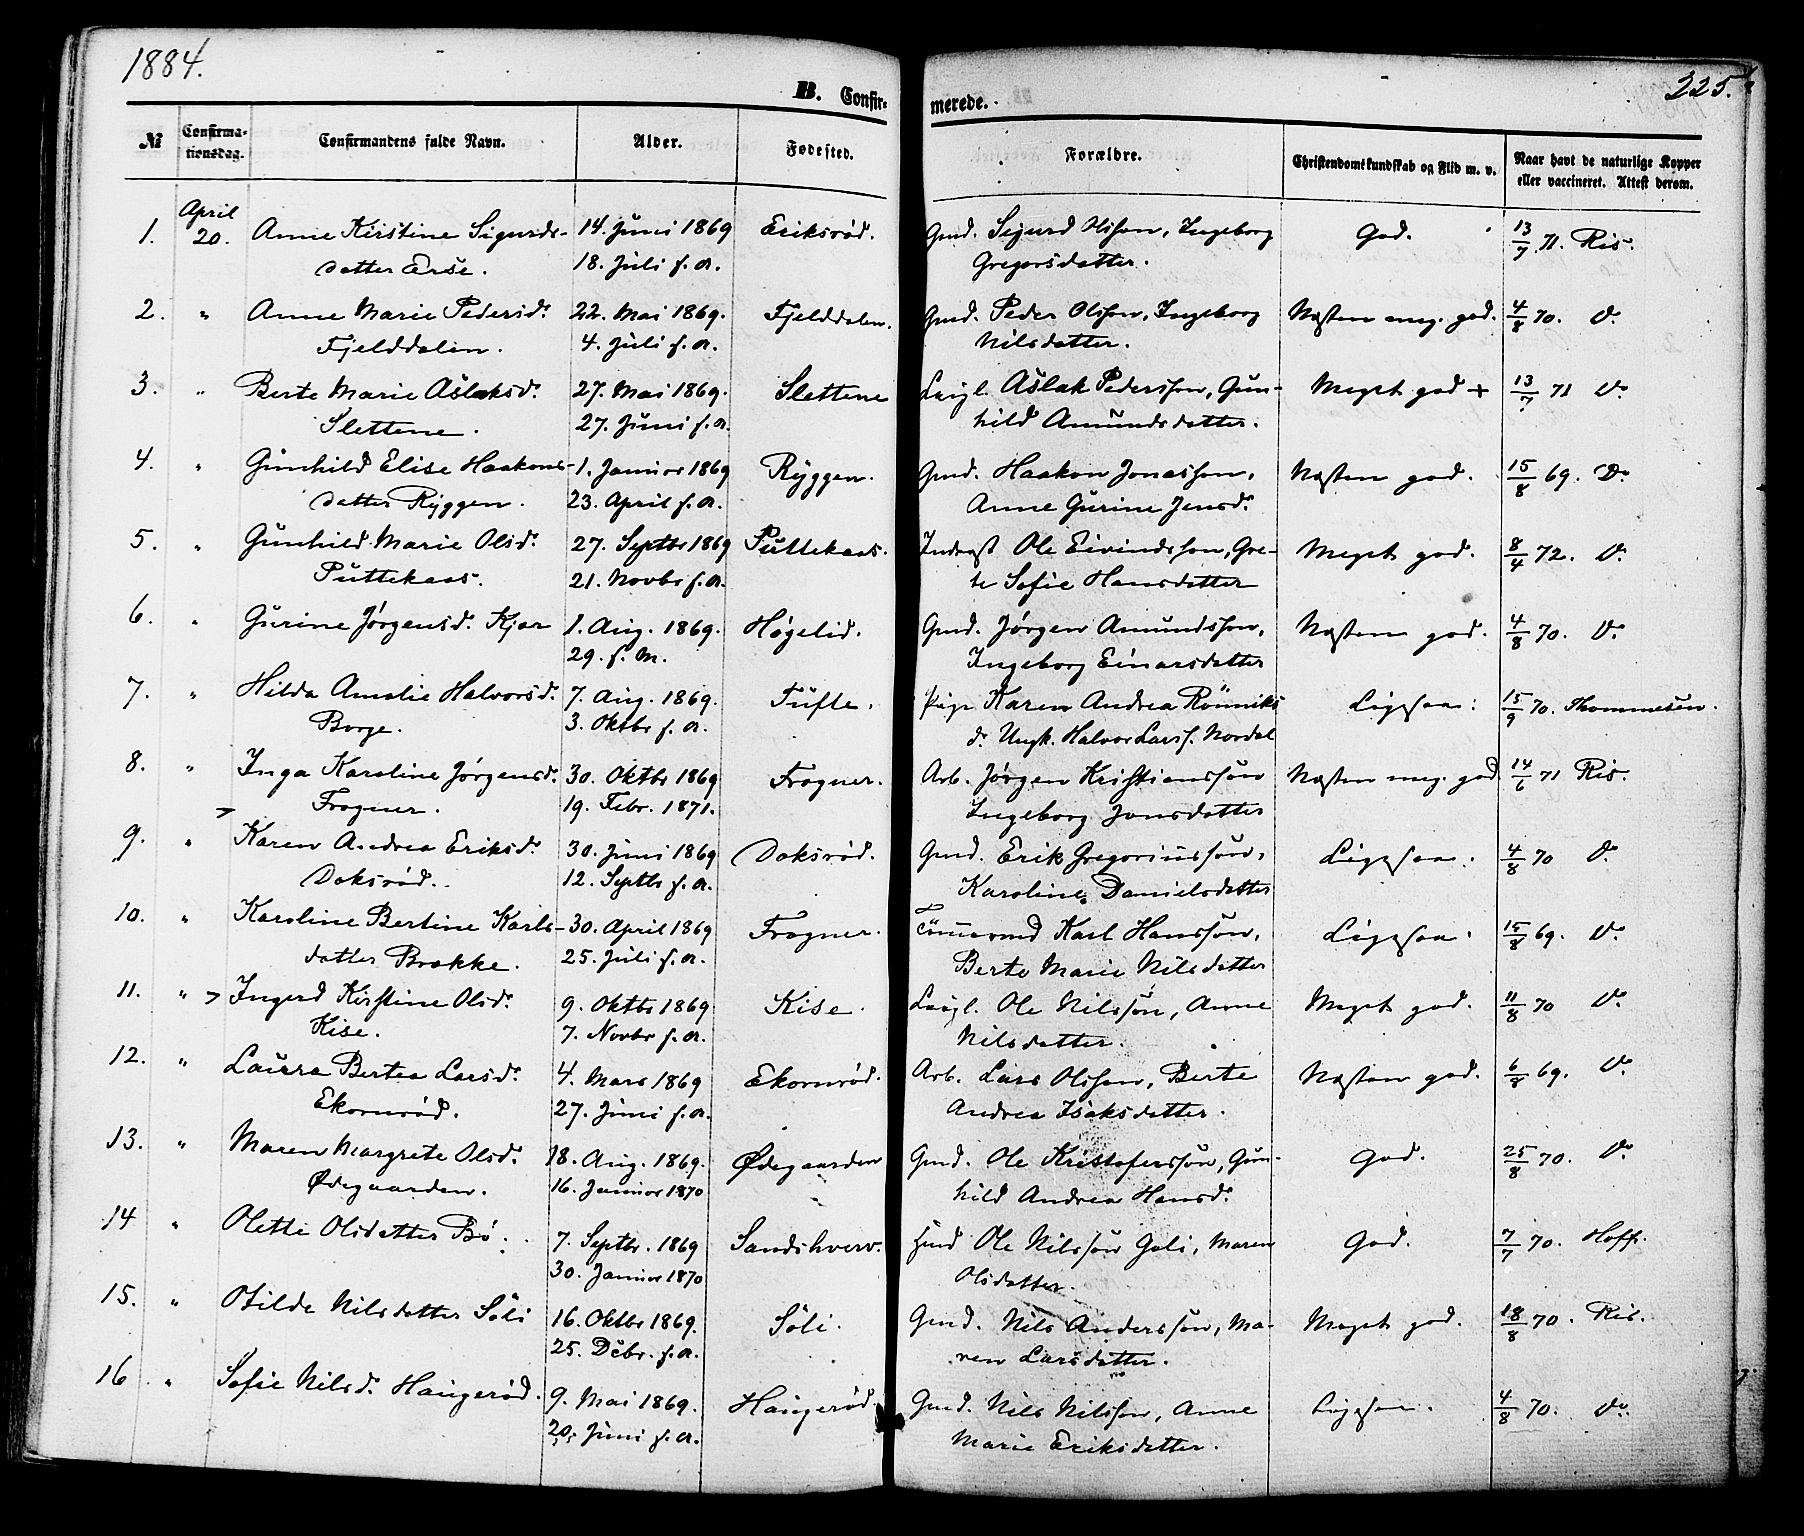 1884.
225.
B. Confirmerede.
№ Confirmationsdag. Confirmandens fulde Navn. Alder. Fødested. Forældre. Christendomskundskab og Flid m. v. Naar havt de naturlige Kopper eller vaccineret. Attest derom.
1. April 20. Anne Kirstine Sigurds- 14. Juni 1869 Eriksrød. Gmd. Sigurd Olsson, Ingeborg God. 13/7 71. Ris.
datter Erse. 18. Juli s. a. Gregorsdatter.
2. " Anne Marie Pedersd. 22. Mai 1869. Fjelddalen. Gmd. Peder Olsson, Ingeborg Næsten meg. god. 4/8 70. Do
Fjelddalen. 4. Juli s. a. Nilsdatter.
3. " Berte Marie Aslaksd. 27. Mai 1869. Slettene Leigl. Aslak Pedersson, Gun- Meget god + 13/7 71 Do
Slettene. 27. Juni s. a. hild Amundsdatter.
4. " Gunhild Elise Haakons- 1. Januar 1869 Ryggen. Gmd. Haakon Jonasson, Næsten god. 15/8 69. Do
datter Ryggen. 23. April s. a. Anne Gurine Jensd.
5. " Gunhild Marie Olsd. 27. Septbr 1869 Puttekaas. Inderst Ole Eivindsson, Gre- Meget god. 8/4 72. Do
Puttekaas. 21. Novbr s. a. te Sofie Hansdatter
6. " Gurine Jørgensd. Kjær 1. Aug. 1869. Høgelid. Gmd. Jørgen Amundsson, Næsten god. 4/8 70. Do
29. s. M. Ingeborg Einarsdatter
7. " Hilda Amalie Halvorsd. 7. Aug. 1869. Tufte. Pige Karen Andrea Rønniks Ligesaa. 15/9 70. Thommesen.
Borge. 3. Oktbr s. a. d. Ungk. Halvor Larss. Nordal
8. " Inga Karoline Jørgensd. 30. Oktbr 1869 Frogner. Arb. Jørgen Kristiansson Næsten meg. god 14/6 71 Ris.
Frogner. 19. Febr. 1871. Ingeborg Jonsdatter
9. " Karen Andrea Eriksd. 30. Juni 1869 Doksrød. Gmd. Erik Gregoriusson, Ligesaa. 4/8 70 Do
Doksrød. 12. Septbr s. a. Karoline Danielsdatter
10. " Karoline Bertine Karls- 30. April 1869 Frogner. Tømmermd Karl Hansson, Ligesaa. 15/8 69. Do
datter Brække. 25. Juli s. a. Berte Marie Nilsdatter
11. " Ingerd Kirstine Olsd. 9. Oktbr 1869 Kise. Leigl. Ole Nilsson, Anne Meget god. 11/8 70 Do
Kise. 7. Novbr s. a. Nilsdatter.
12. " Laura Bertea Larsd. 4. Mars 1869 Ekornrød. Arb. Lars Olsson, Berte Næsten god. 6/8 69. Do
Ekornrød. 27. Juni s. a. Andrea Isaksdatter.
13. " Maren Margrete Olsd. 18. Aug. 1869. Ødegaarden Gmd. Ole Kristofersson, Gun- God. 25/8 70. Do
Ødegaarden. 16. Januar 1870 hild Andrea Hansd.
14 " Olette Olsdatter Bø. 7. Septbr. 1869 Sandshverv. Hmd Ole Nilsson Goli, Maren God. 7/7 70. Hoff.
30. Januar 1870 Olsdatter.
15. " Otilde Nilsdatter Søli 16. Oktbr 1869. Søli. Gmd. Nils Andersson, Ma- Meget god. 18/8 70. Ris.
25. Debr. s. a. ren Larsdatter.
16. " Sofie Nilsd. Haugerød. 9. Mai 1869. Haugerød. Gmd. Nils Nilsson, Anne Ligesaa. 4/8 70. Do
20. Juni s. a. Marie Eriksdatter.